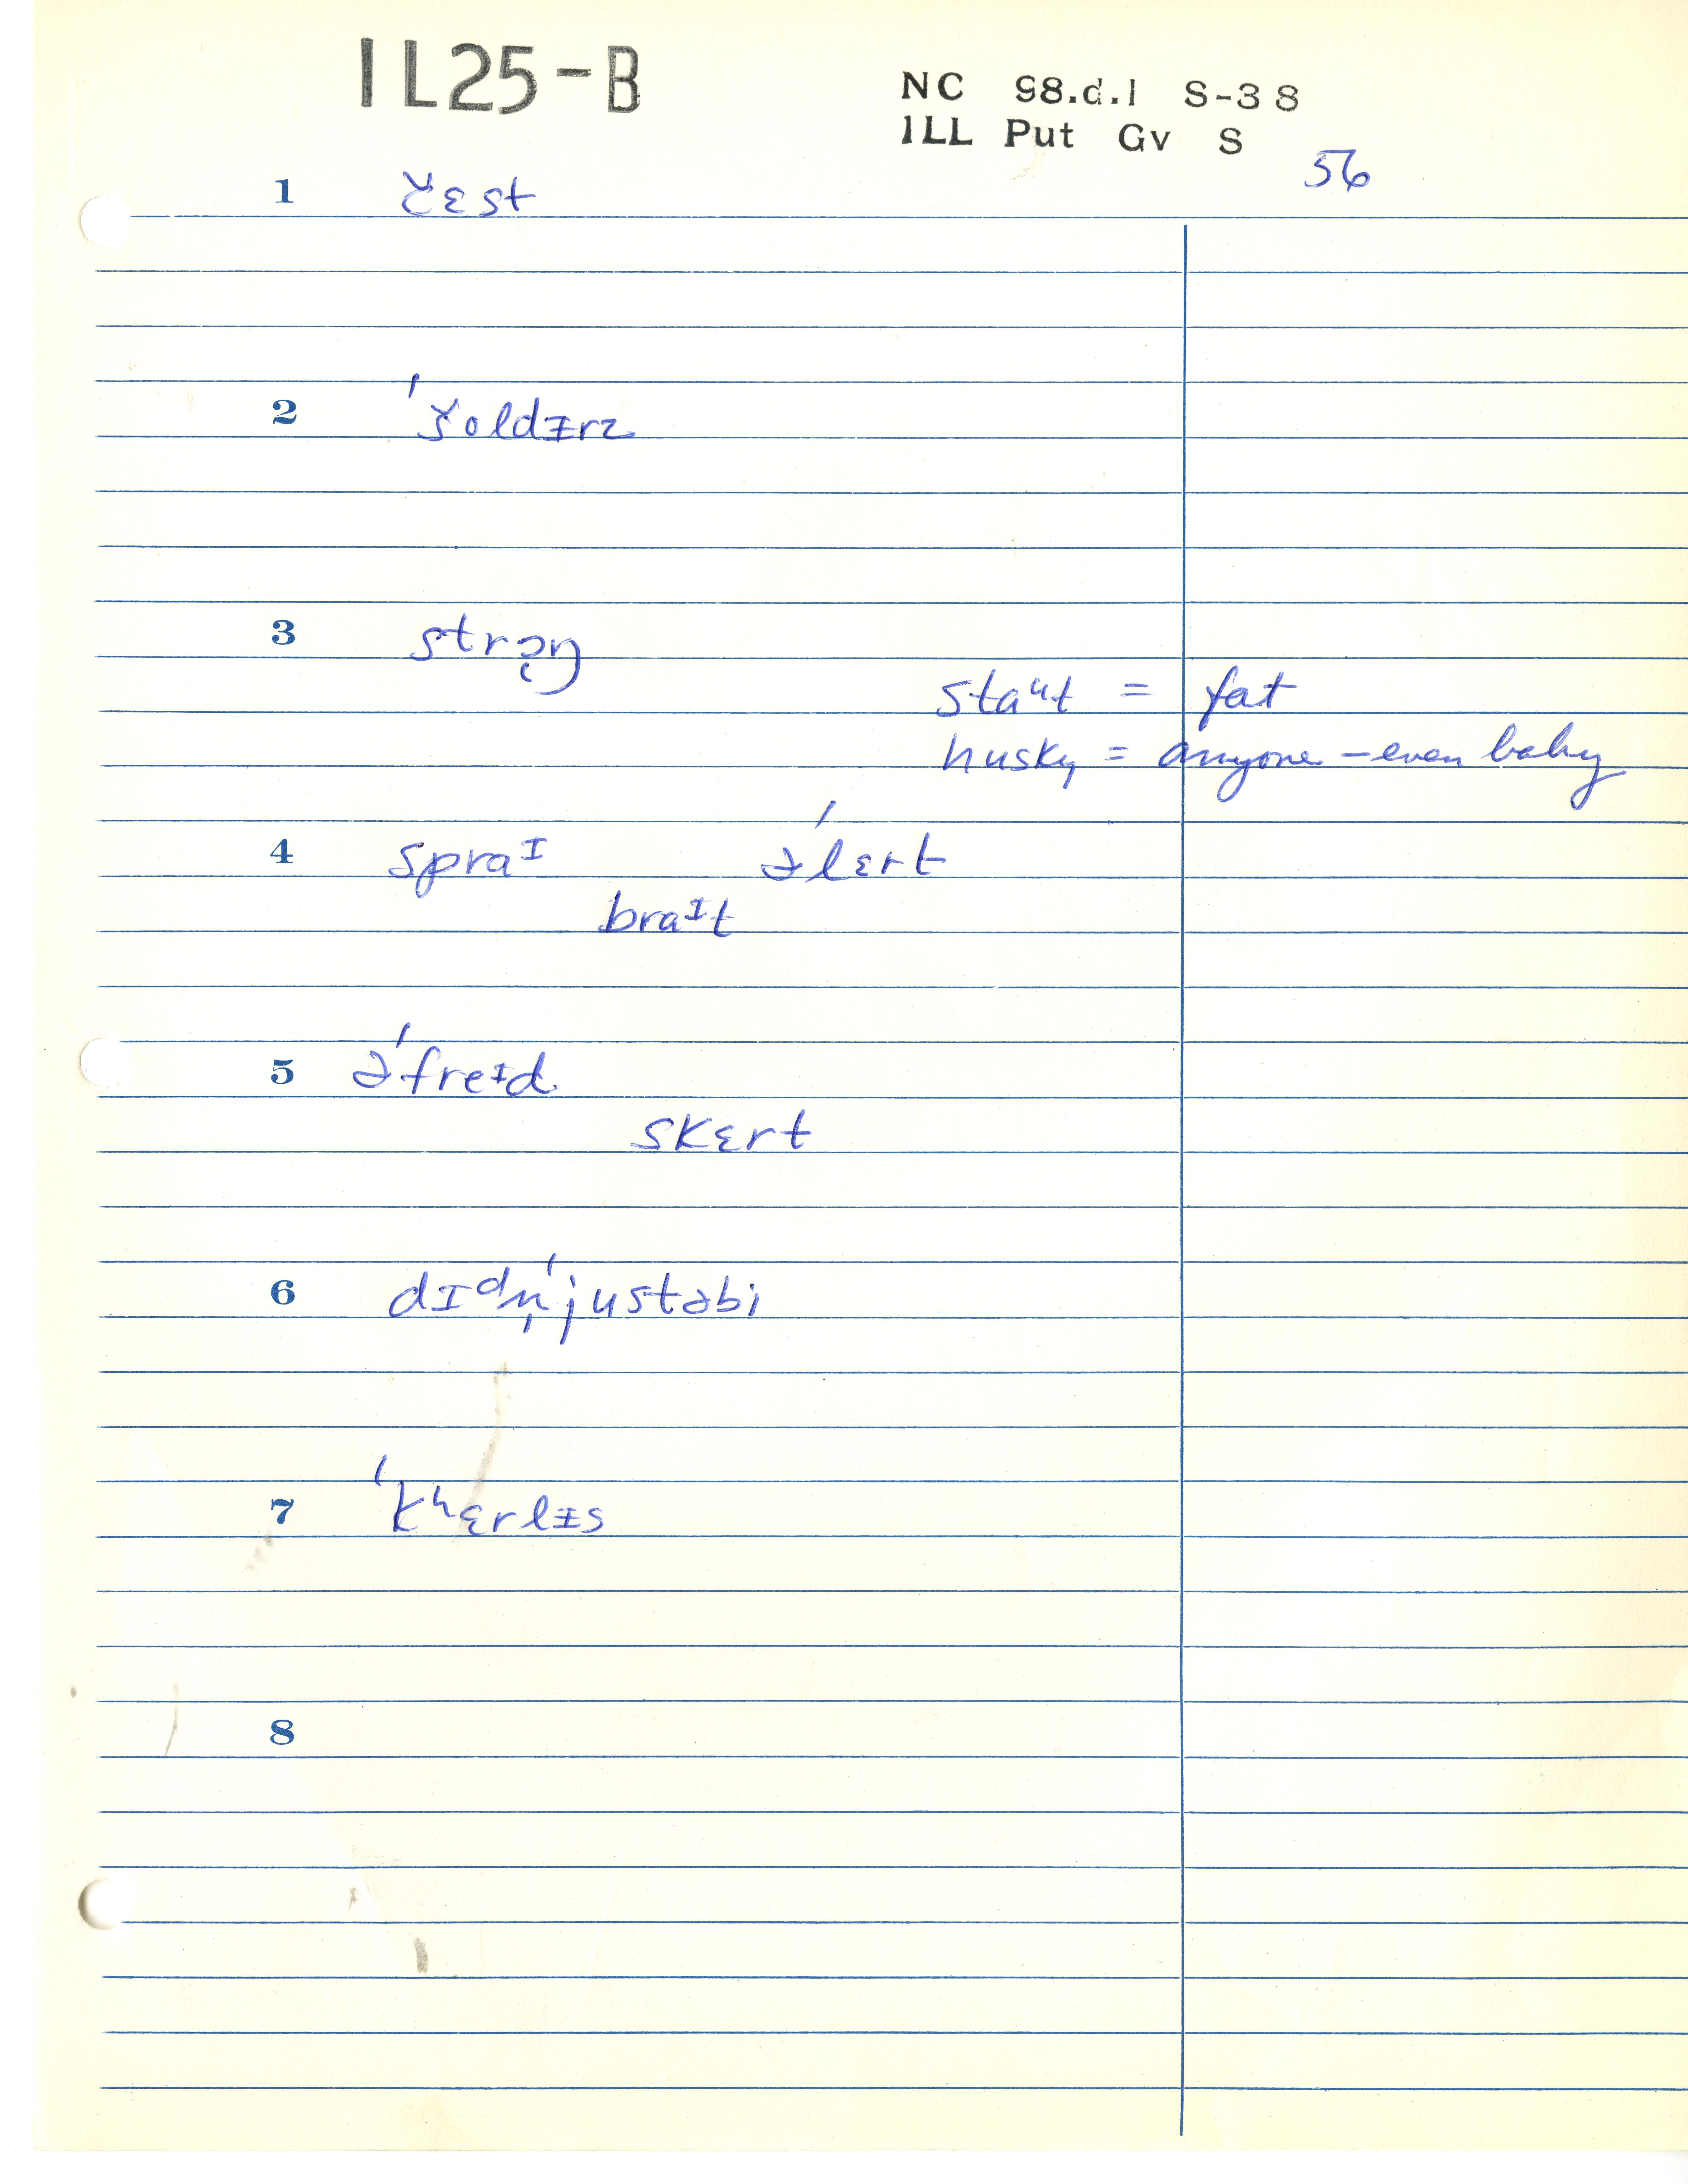 IL25-B
NC 98.d.1 S-38
ILL Put Gv S
56
1 čɛst
2 ˈšoldɪrz
3 strɔ̨ŋ
staᵘt = fat
husky = anyone – even baby
4 spraᶦ əˈlɛrt
braᶦt
5 əˈfreᶦd
skɛrt
6 dɪᵈn̩ˈjustəbi
7 ˈkʰɛrlɪs
8